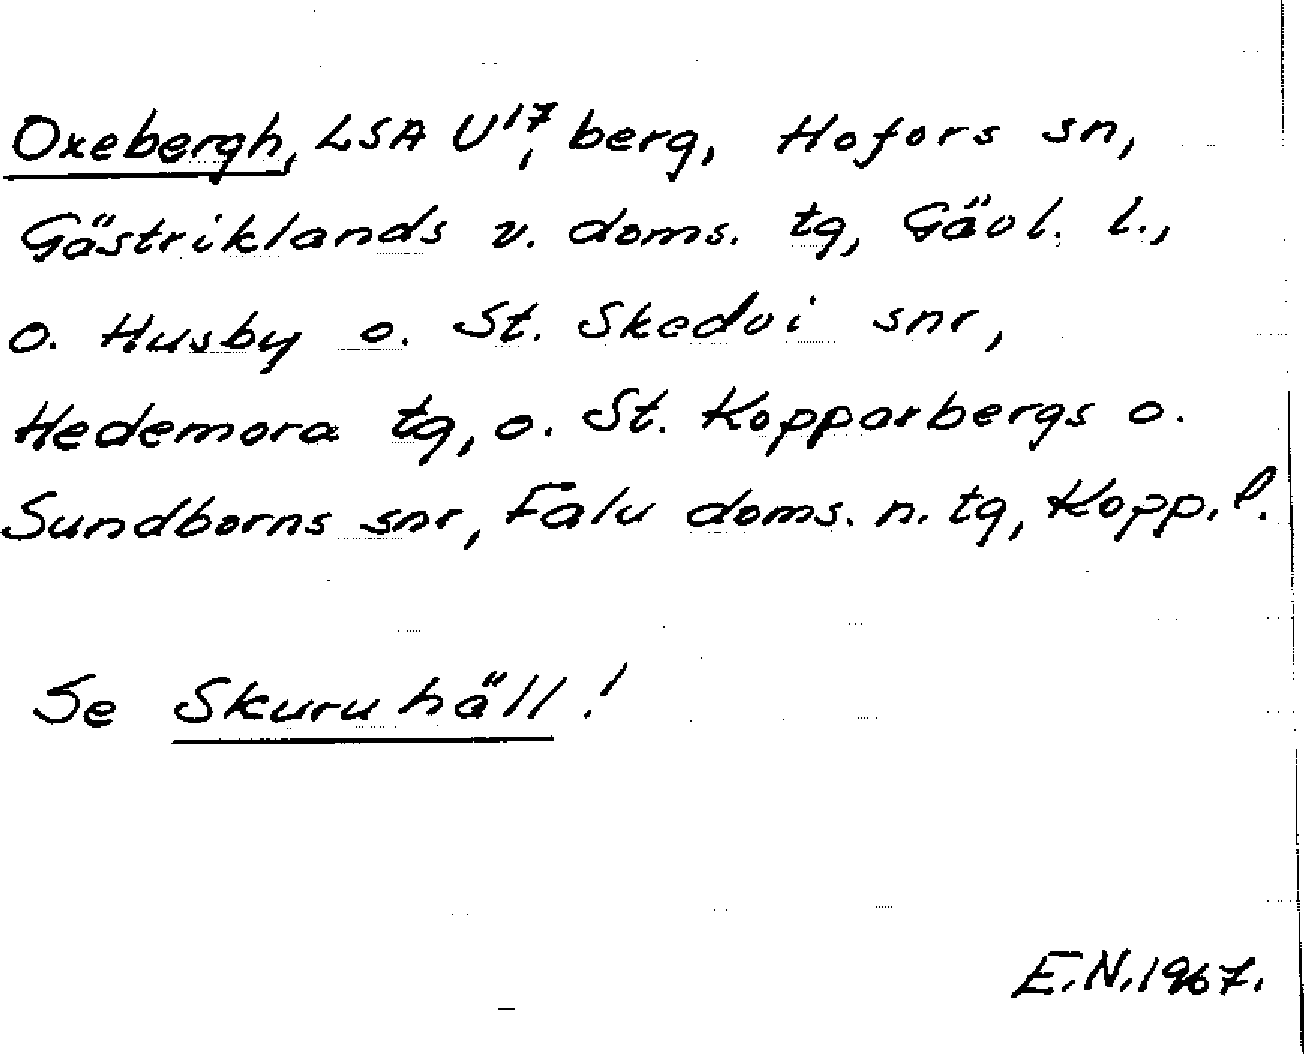 Oxebergh, LSA U¹⁷, berg, Hofors sn,
Gästriklands v. doms. tg, Gävl. l.,
o. Husby o. St. Skedvi snr,
Hedemora tg, o. St. Kopparbergs o.
Sundborns snr, Falu doms. n. tg, Kopp. l.
Se Skuruhäll!
E.N. 1967.